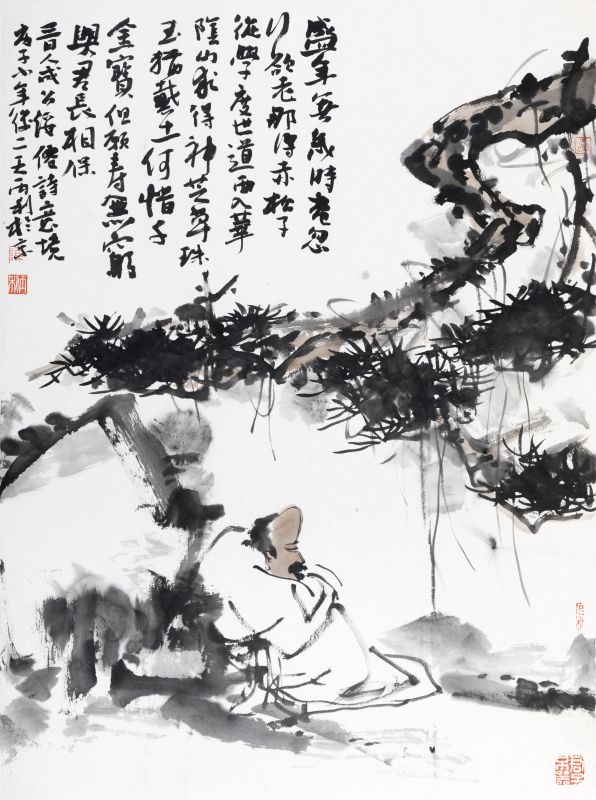 盛年無幾時奄忽
行欲老那得赤松子
從學度世道西入華
陰山求得神芝草珠
玉猶戴土何惜千
金寶但願壽無窮
與君長相保
晉人成公綏僊詩意境
庚子小年後二天丙利於京